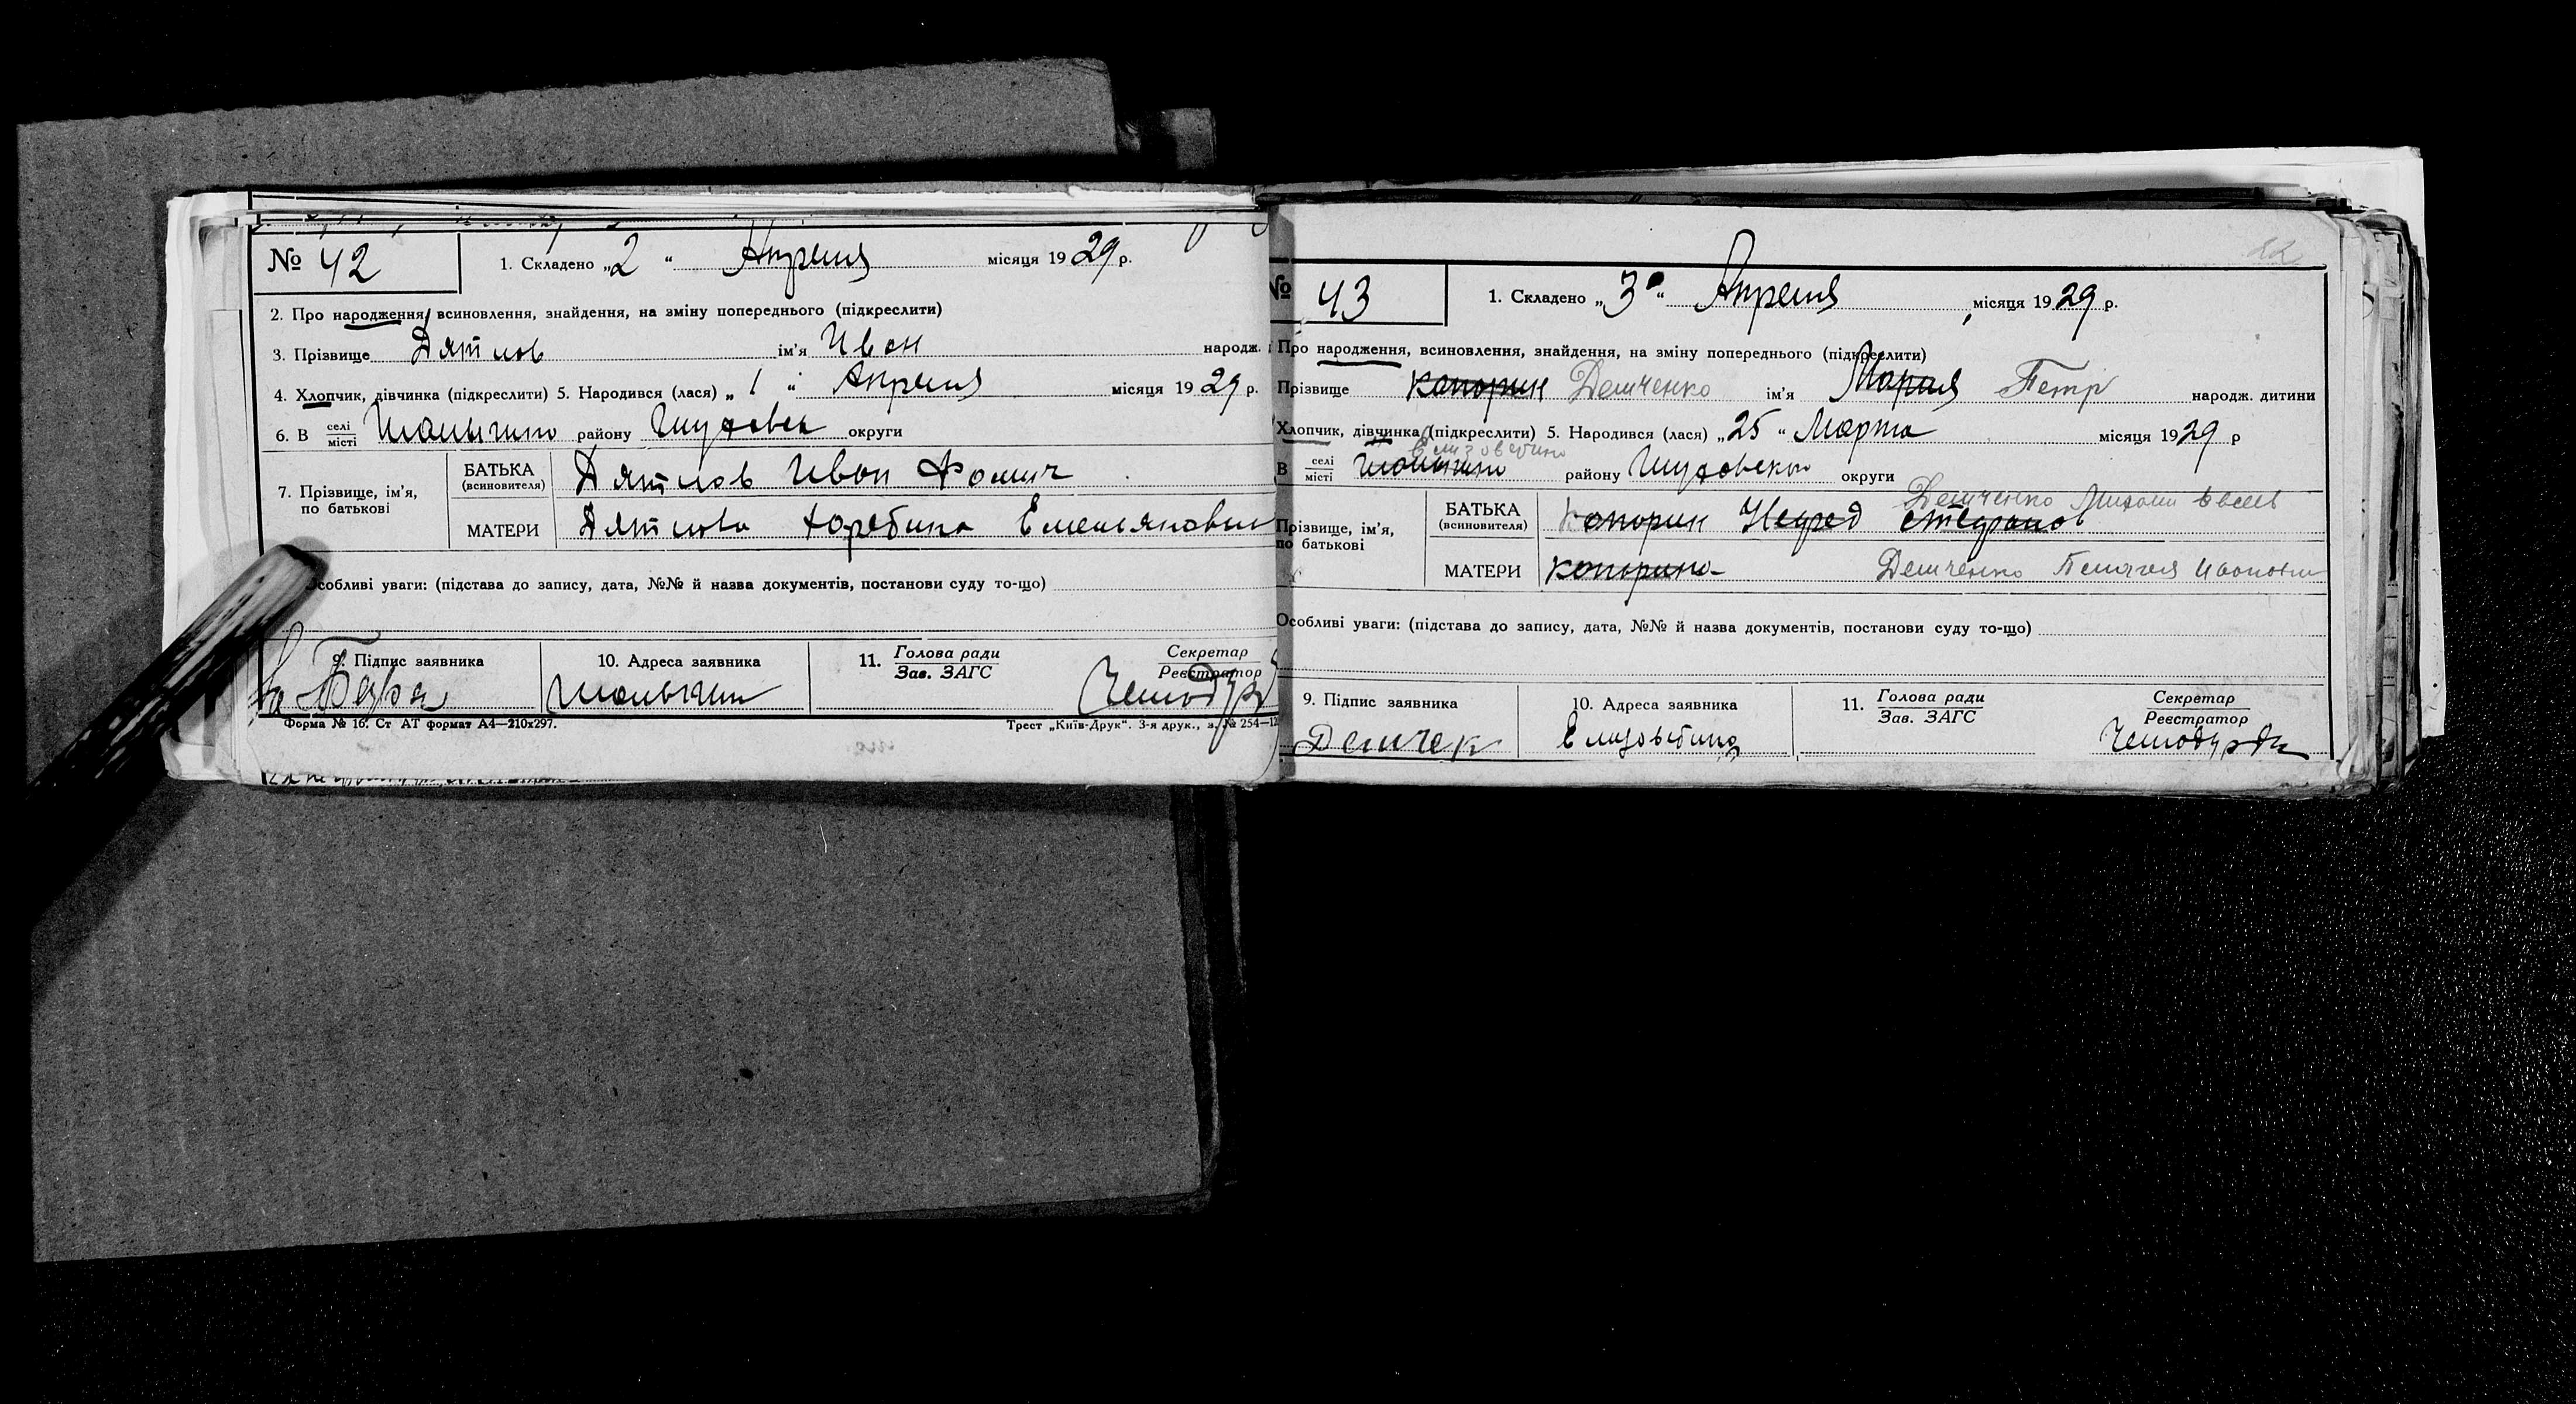 № 42 1. Складено „2“ Апреля місяця 1929 р.
2. Про народження, всиновлення, знайдення, на зміну попереднього (підкреслити)
3. Прізвище Дятлов ім'я Иван народж.
4. Хлопчик, дівчинка (підкреслити) 5. Народився (лася) „1“ Апреля місяця 1929 р.
6. В селі місті району округи
7. Прізвище, ім'я, по батькові
БАТЬКА (всиновителя) Дятлов Иван Фомич
МАТЕРИ Дятлова Емельяновна
Особливі уваги: (підстава до запису, дата, №№ й назва документів, постанови суду то-що)
9. Підпис заявника 10. Адреса заявника 11. Голова ради Зав. ЗАГС Секретар Реєстратор
Форма № 16. Ст АТ формат А4—210х297. Трест „Київ-Друк“. 3-я друк., з. № 254—12
№ 43 1. Складено „3“ Апреля місяця 1929 р.
Про народження, всиновлення, знайдення, на зміну попереднього (підкреслити)
Прізвище Копорин Демченко ім'я Мария Петр народж. дитини
Хлопчик, дівчинка (підкреслити) 5. Народився (лася) „25“ Марта місяця 1929 р
Елизаветино
В селі місті району округи
Прізвище, ім'я, по батькові
Демченко Михаил Евсеев
БАТЬКА (всиновителя) Копорин
МАТЕРИ Копорина Демченко Пелагея Ивановна
Особливі уваги: (підстава до запису, дата, №№ й назва документів, постанови суду то-що)
9. Підпис заявника 10. Адреса заявника 11. Голова ради Зав. ЗАГС Секретар Реєстратор
Демчек Елизаветино